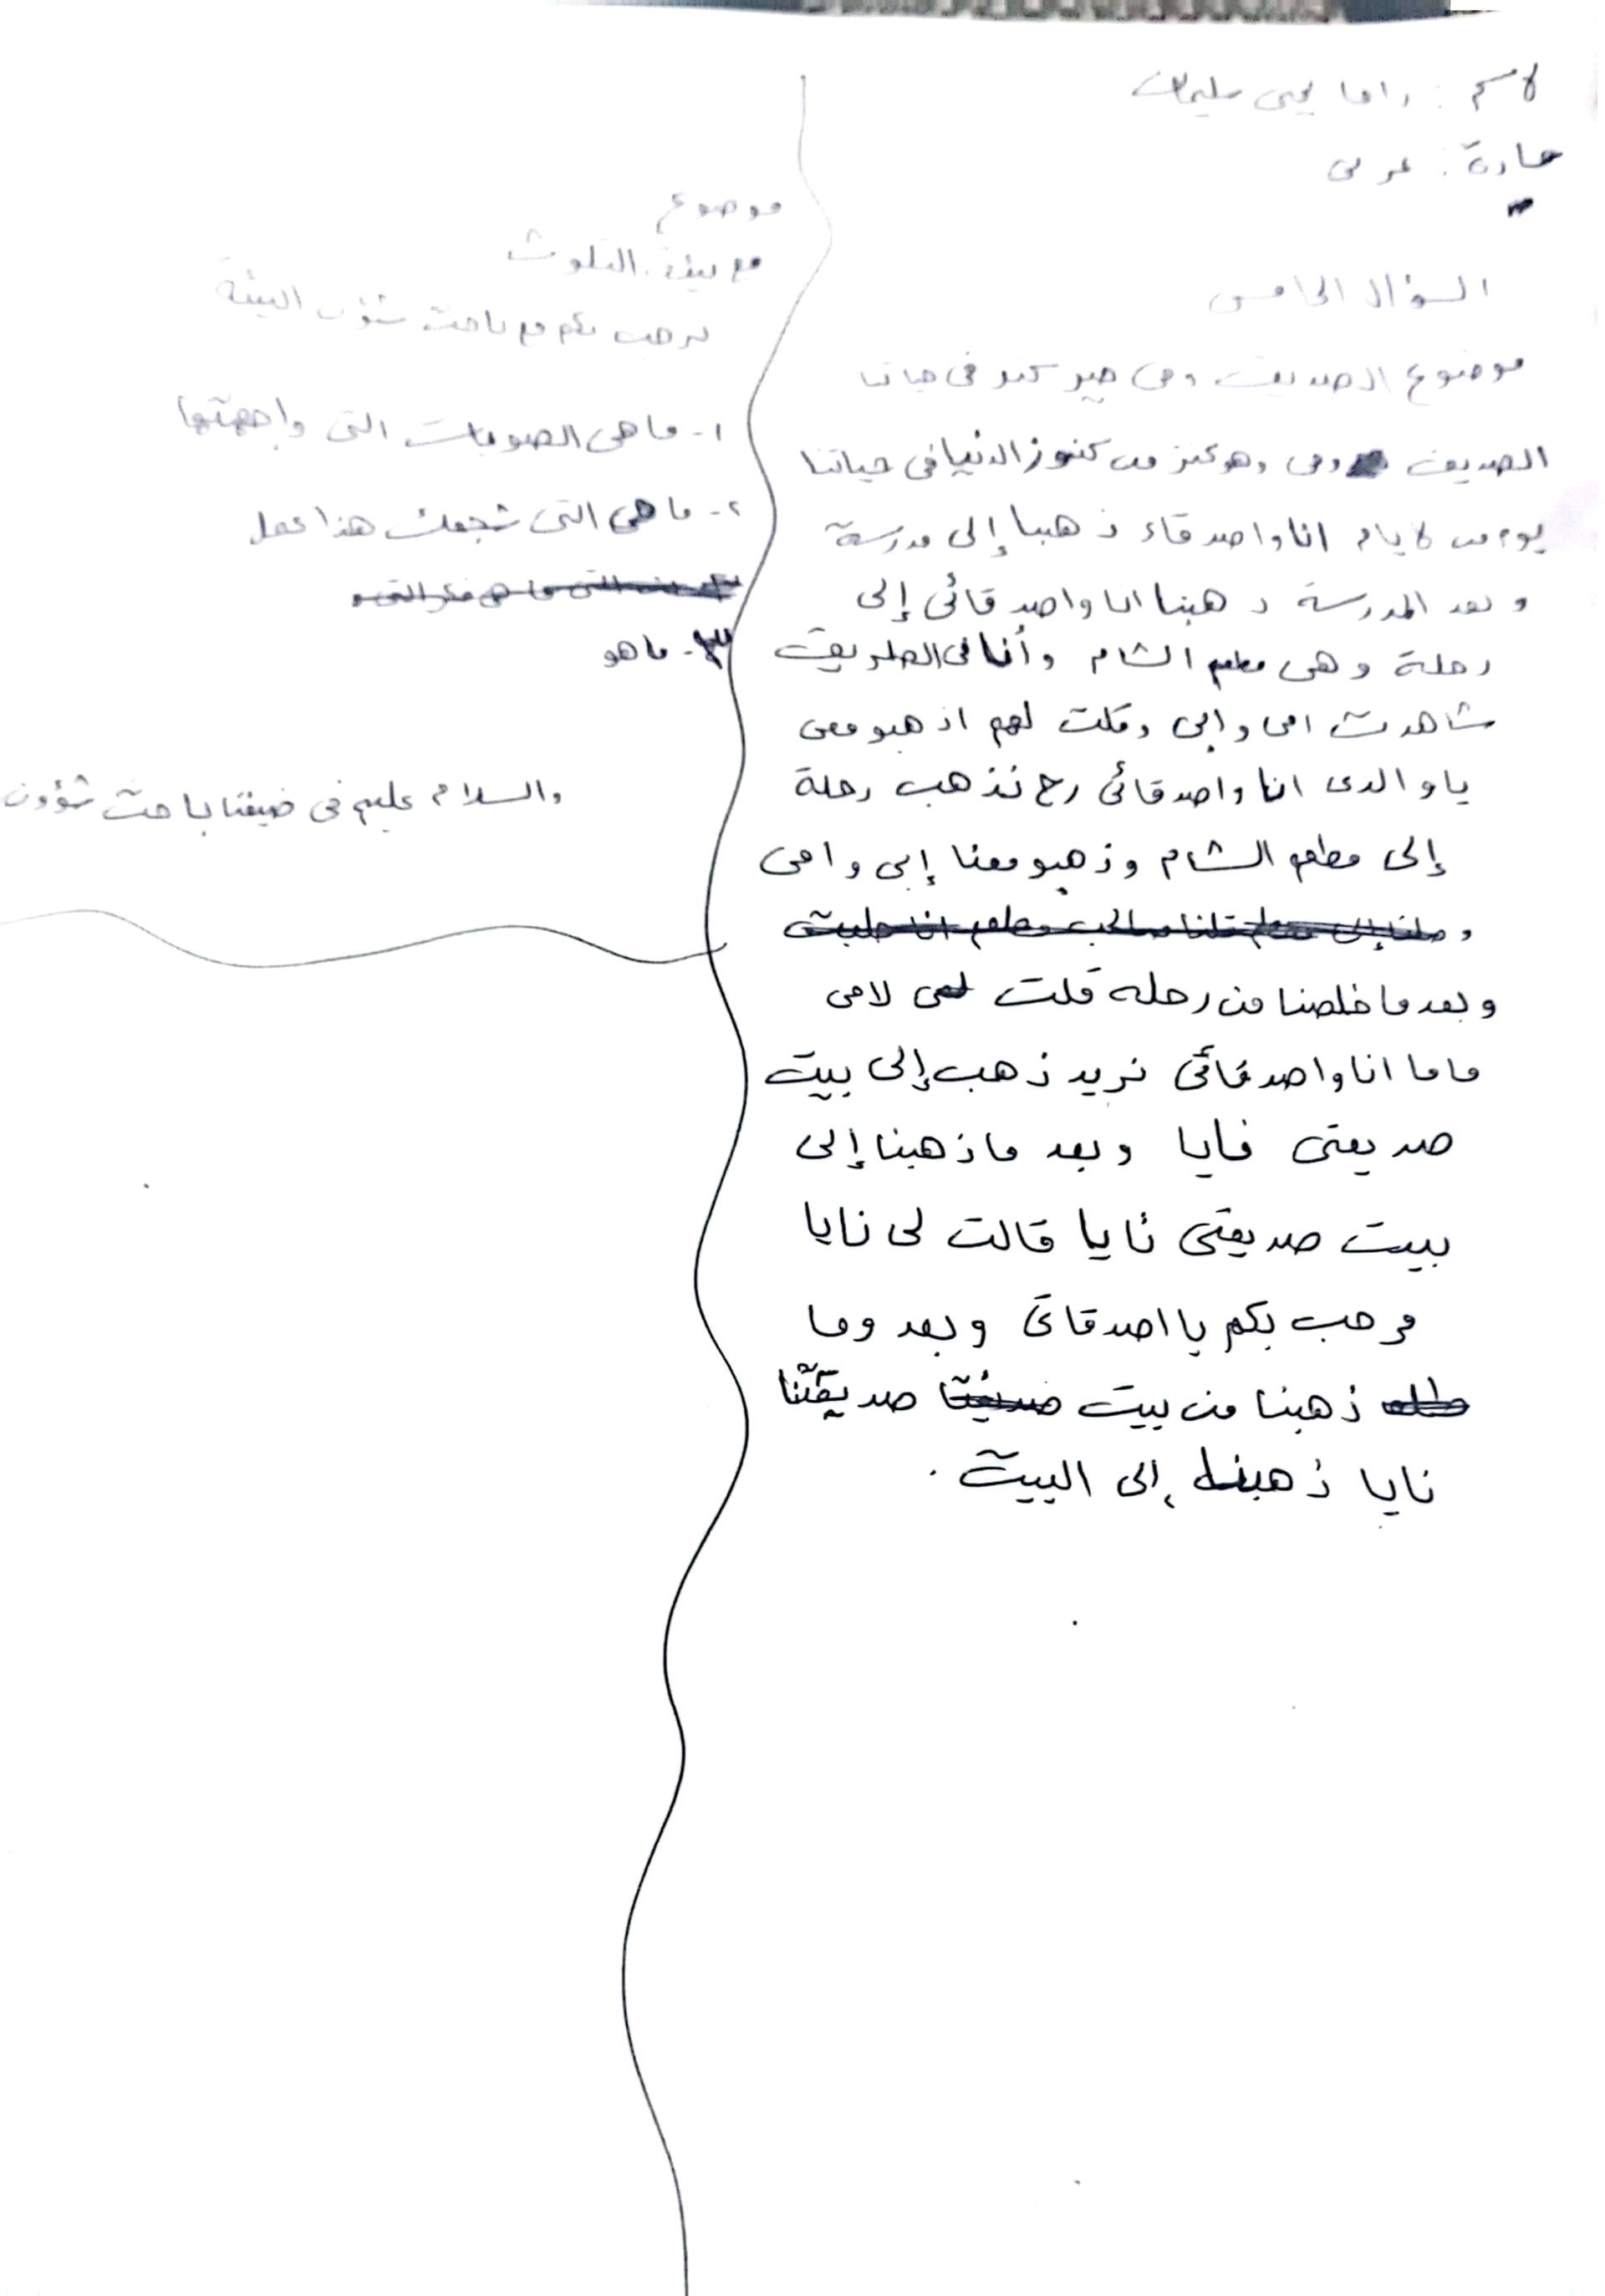 لاسم : راما يحيى سليمان
مادة : عربي
السؤال الخامس
موضوع الصديق وهي خير كنز في حياتنا
الصديق وفي وهو كنز من كنوز الدنيا في حياتنا
يوم من لايام انا واصدقاء ذهبنا إلى مدرسة
وبعد المدرسة ذهبنا انا واصدقائي إلى
رحلة وهي مطعم الشام وأنا في الطريق
شاهدت امي وابي وقلت لهم اذهبو معي
يا والدي انا واصدقائي رح نذهب رحلة
إلى مطعم الشام وذهبو معنا إبي وامي
وبعد ما خلصنا من رحله قلت لامي
ماما انا واصدقائي نريد ذهب إلى بيت
صديقتي نايا وبعد ما ذهبنا إلى
بييت صديقتي نايا قالت لي نايا
مرحب بكم يا اصدقائي وبعد وما
ذهبنا من بييت صديقتنا
نايا ذهبنا إلى البييت .
موضوع
مع بيئة التلوث
نرحب بكم مع باحث شؤن البيئة
١- ما هي الصوبات التي واجهتها
٢- ما هي التي شجعك هذا عمل
٣- ما هو
والسلام عليم في ضيفنا باحث شؤون